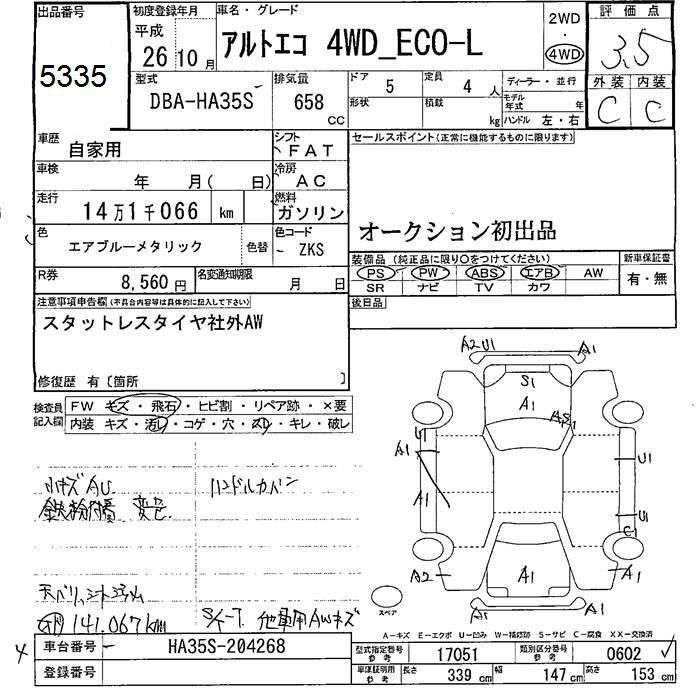 出品番号 初度登録年月 車名・グレード 2WD 評価点
平成 アルトエコ 4WD_ECO-L 4WD 3.5
26 10月
5335 型式 排気量 ドア 定員 ディーラー・並行 外装 内装
DBA-HA35S 658 CC 5 4人 モデル年式 年 C C
形状 積載 kg ハンドル 左・右
車歴 自家用 シフト FAT セールスポイント(正常に機能するものに限ります)
車検 年 月( 日) 冷房 AC
走行 14万1千066 km 燃料 ガソリン
色 エアブルーメタリック 色替 色コード ZKS オークション初出品
装備品(純正品に限り○をつけてください) 新車保証書
R券 8,560円 名変通知期限 月 日 PS PW ABS エアB AW 有・無
SR ナビ TV カワ
注意事項申告欄(不具合内容等は具体的に記入して下さい) 後日品
スタットレスタイヤ社外AW
修復歴 有〔箇所 〕
検査員記入欄 FW キズ・飛石・ヒビ割・リペア跡・×要
内装 キズ・汚レ・コゲ・穴・スレ・キレ・破レ
A2 U1 A1
S1
A1
U1
A1 U1
A1
U1
C1
A2 A1 A1
A1 A1
小キズ AU ハンドルカバン
変色
141.067km 他車用AWキズ
スペア
A-キズ E-エクボ U-凹み W-補修跡 S-サビ C-腐食 XX-交換済
車台番号 HA35S-204268 型式指定番号 参考 17051 類別区分番号 参考 0602
登録番号 車庫証明用 参考 長さ 339 cm 幅 147 cm 高さ 153 cm